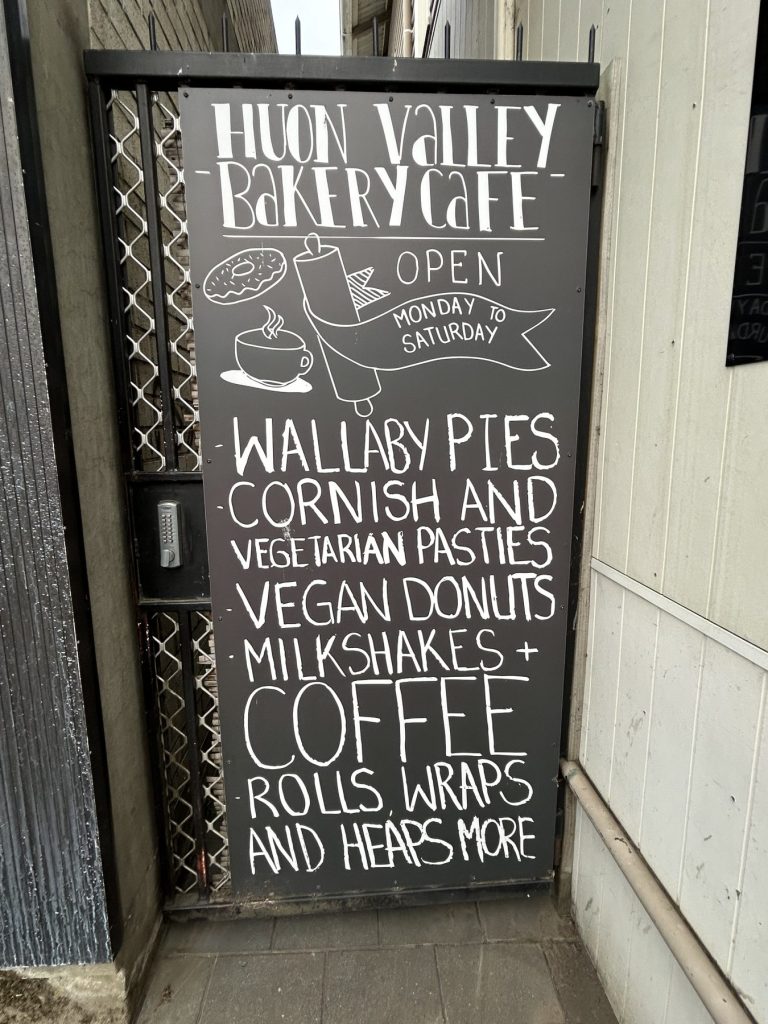 HUON VALLEY
- BAKERY CAFE -
OPEN
MONDAY TO
SATURDAY
- WALLABY PIES
- CORNISH AND
VEGETARIAN PASTIES
- VEGAN DONUTS
- MILKSHAKES +
COFFEE
- ROLLS, WRAPS
AND HEAPS MORE